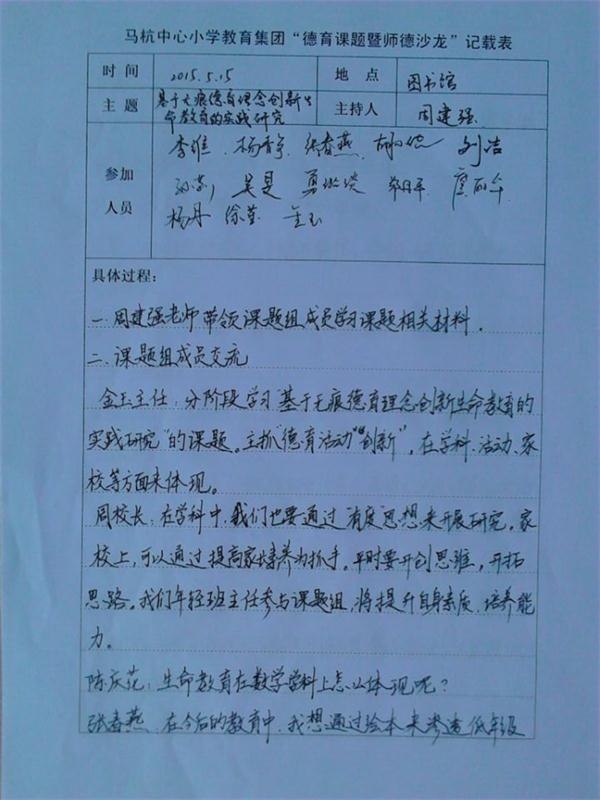 马杭中心小学教育集团“德育课题暨师德沙龙”记载表
时 间 2015.5.15 地 点 图书馆
主 题 基于无痕德育理念创新生命教育的实践研究 主持人 周建强
参加人员
杨青宁 张春燕 刘洁
吴昊
杨丹 徐莹 金玉
具体过程:
一.周建强老师带领课题组成员学习课题相关材料.
二.课题组成员交流
金玉主任:分阶段学习“基于无痕德育理念创新生命教育的
实践研究”的课题。主抓“德育活动”“创新”。在学科、活动、家
校等方面来体现。
周校长:在学科中,我们也要通过“有度”思想来开展研究。家
校上,可以通过提高家长培养为抓手。平时要开创思维,开拓
思路。我们年轻班主任参与课题组,将提升自身素质、培养能
力。
陈庆花:生命教育在数学学科上怎么体现呢?
张春燕:在今后的教育中,我想通过绘本来渗透低年级